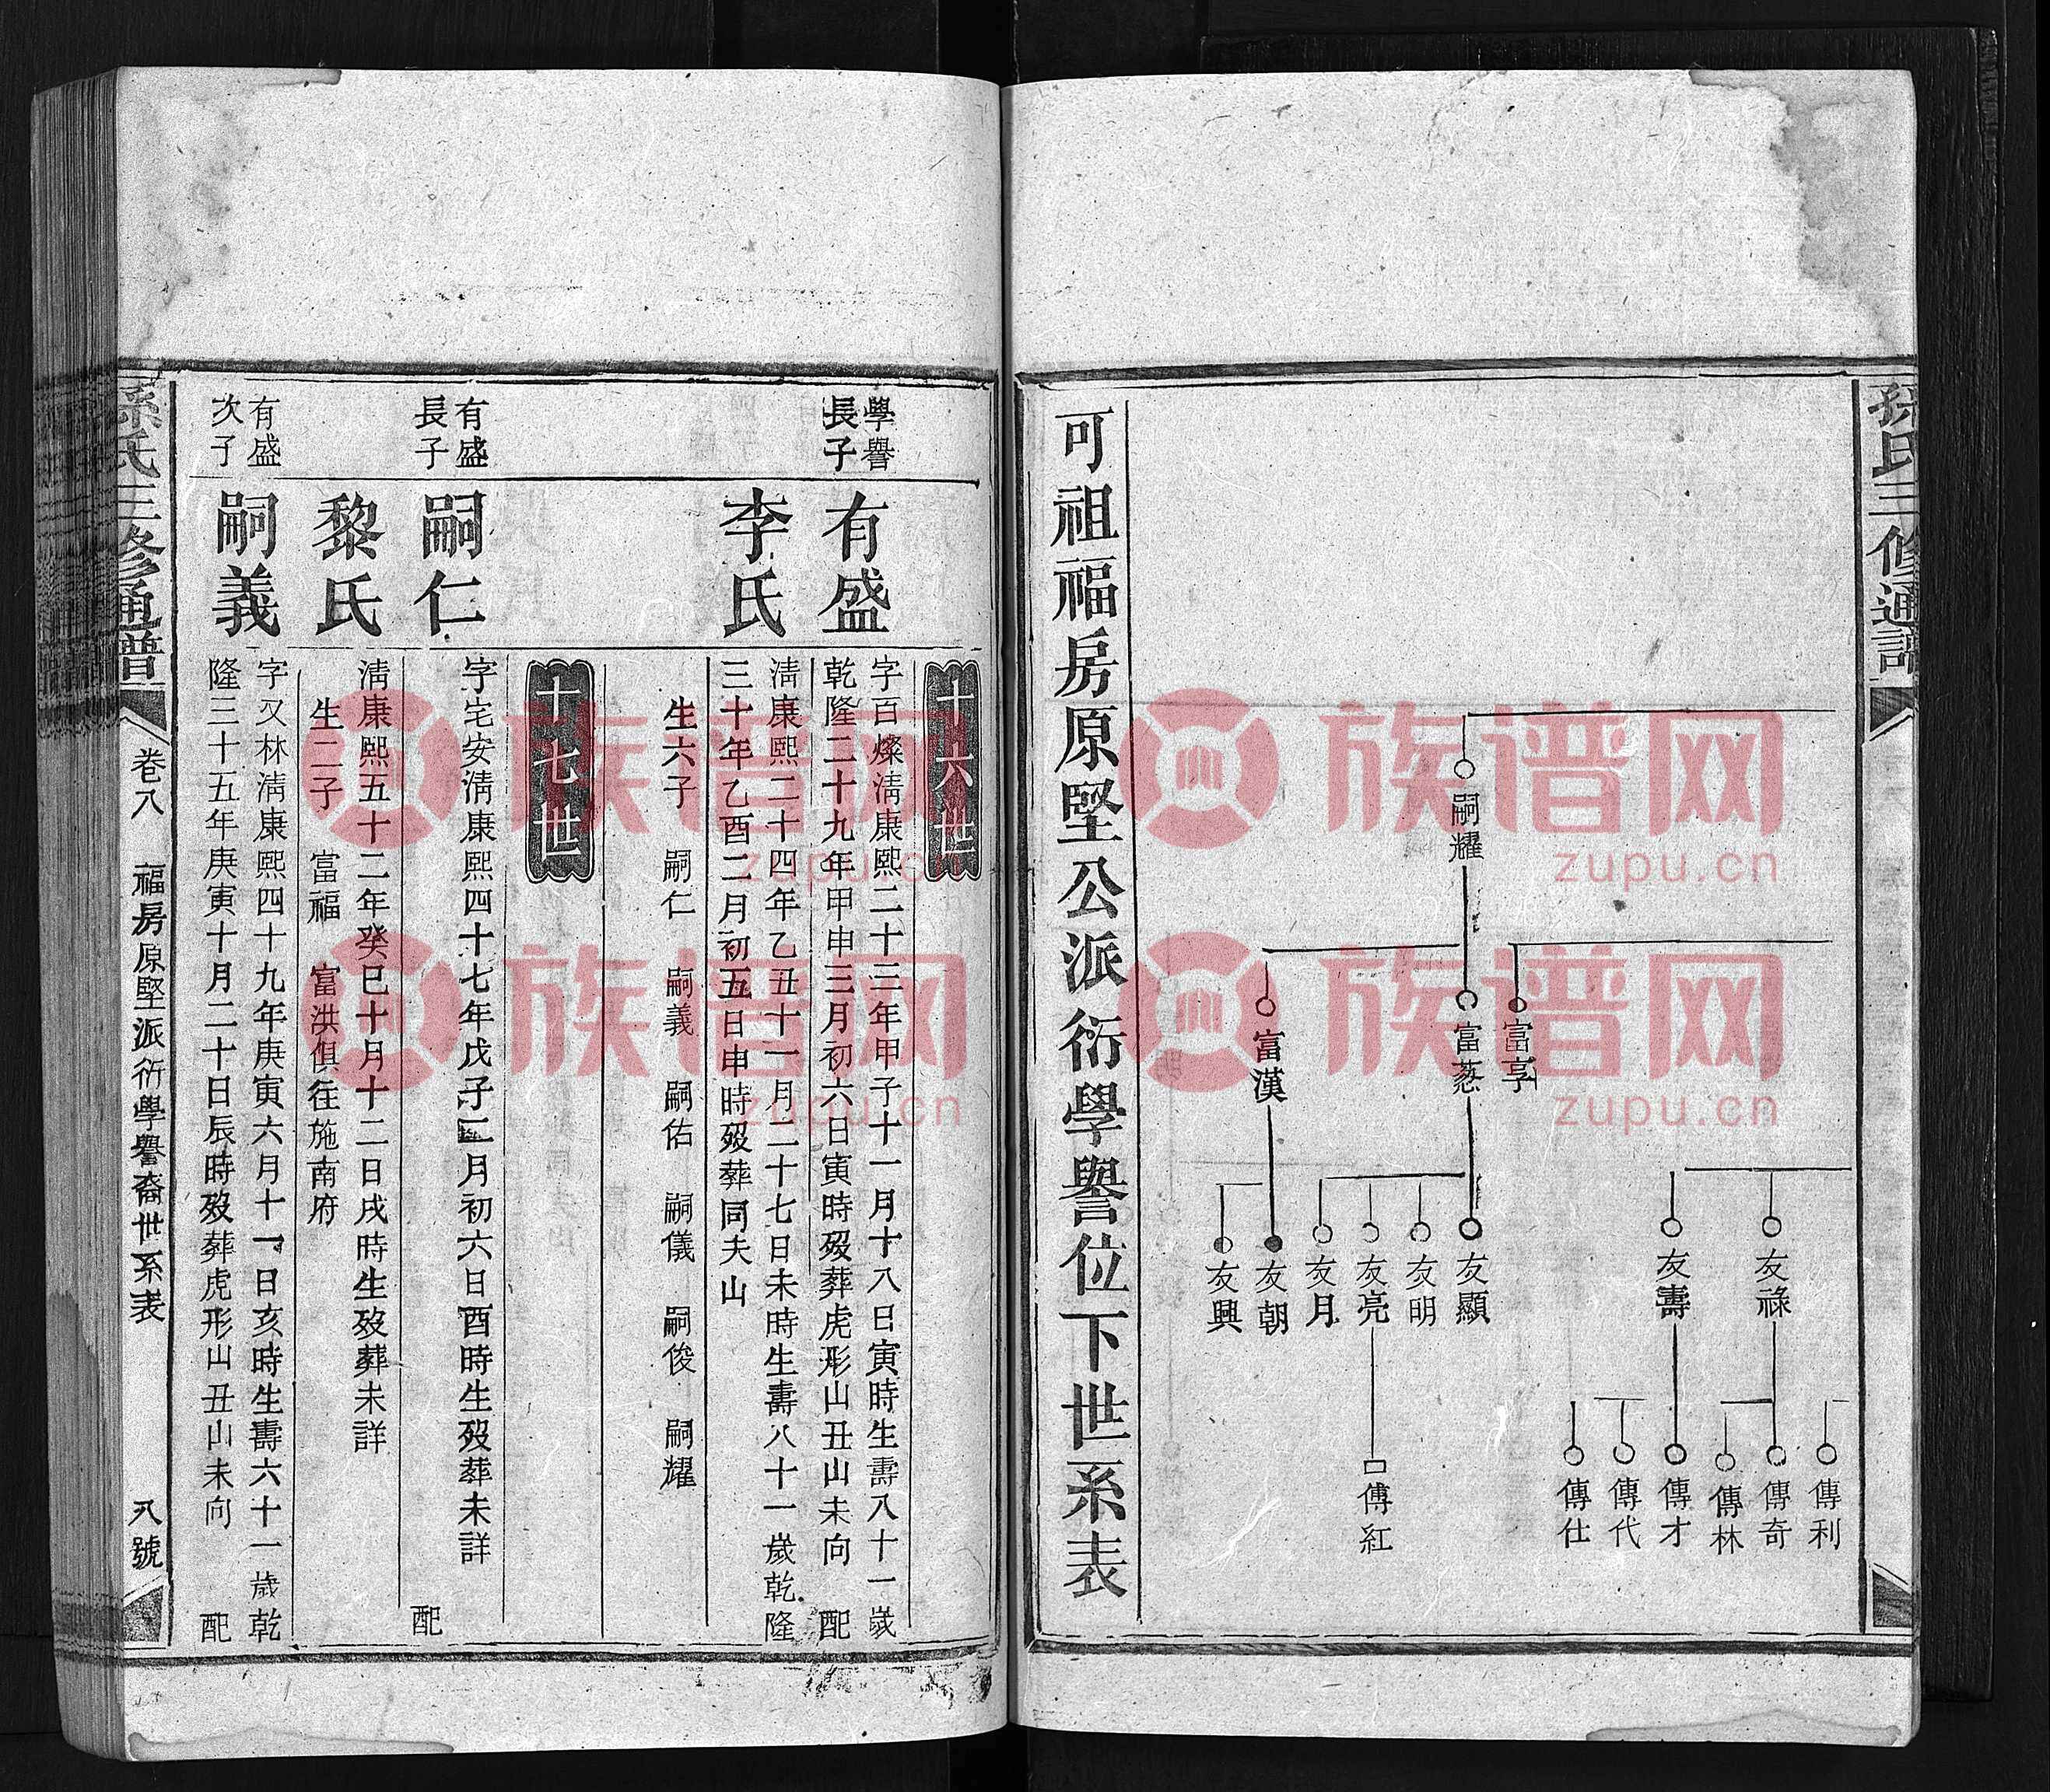 孫氏三修通譜
嗣耀
富享
富蔥
富漢
友祿
友壽
友顯
友明
友亮
友月
友朝
友興
傳利
傳奇
傳林
傳才
傳代
傳仕
傳紅
可祖福房原堅公派衍學譽位下世系表
十六世
學譽
長子
有盛
字百燦淸康熙二十三年甲子十一月十八日寅時生壽八十一歲
乾隆二十九年甲申三月初六日寅時歿葬虎形山丑山未向 配
李氏
淸康熙二十四年乙丑十一月二十七日未時生壽八十一歲乾隆
三十年乙酉二月初五日申時歿葬同夫山
生六子 嗣仁 嗣義 嗣佑 嗣儀 嗣俊 嗣耀
十七世
有盛
長子
嗣仁
字宅安淸康熙四十七年戊子二月初六日酉時生歿葬未詳
配
黎氏
淸康熙五十二年癸巳十月十二日戌時生歿葬未詳
生二子 富福 富洪俱往施南府
有盛
次子
嗣義
字又林淸康熙四十九年庚寅六月十一日亥時生壽六十一歲乾
隆三十五年庚寅十月二十日辰時歿葬虎形山丑山未向 配
孫氏三修通譜
卷八 福房原堅派衍學譽裔世系表 八號
族谱网
zupu.cn
族谱网
zupu.cn
族谱网
zupu.cn
族谱网
zupu.cn